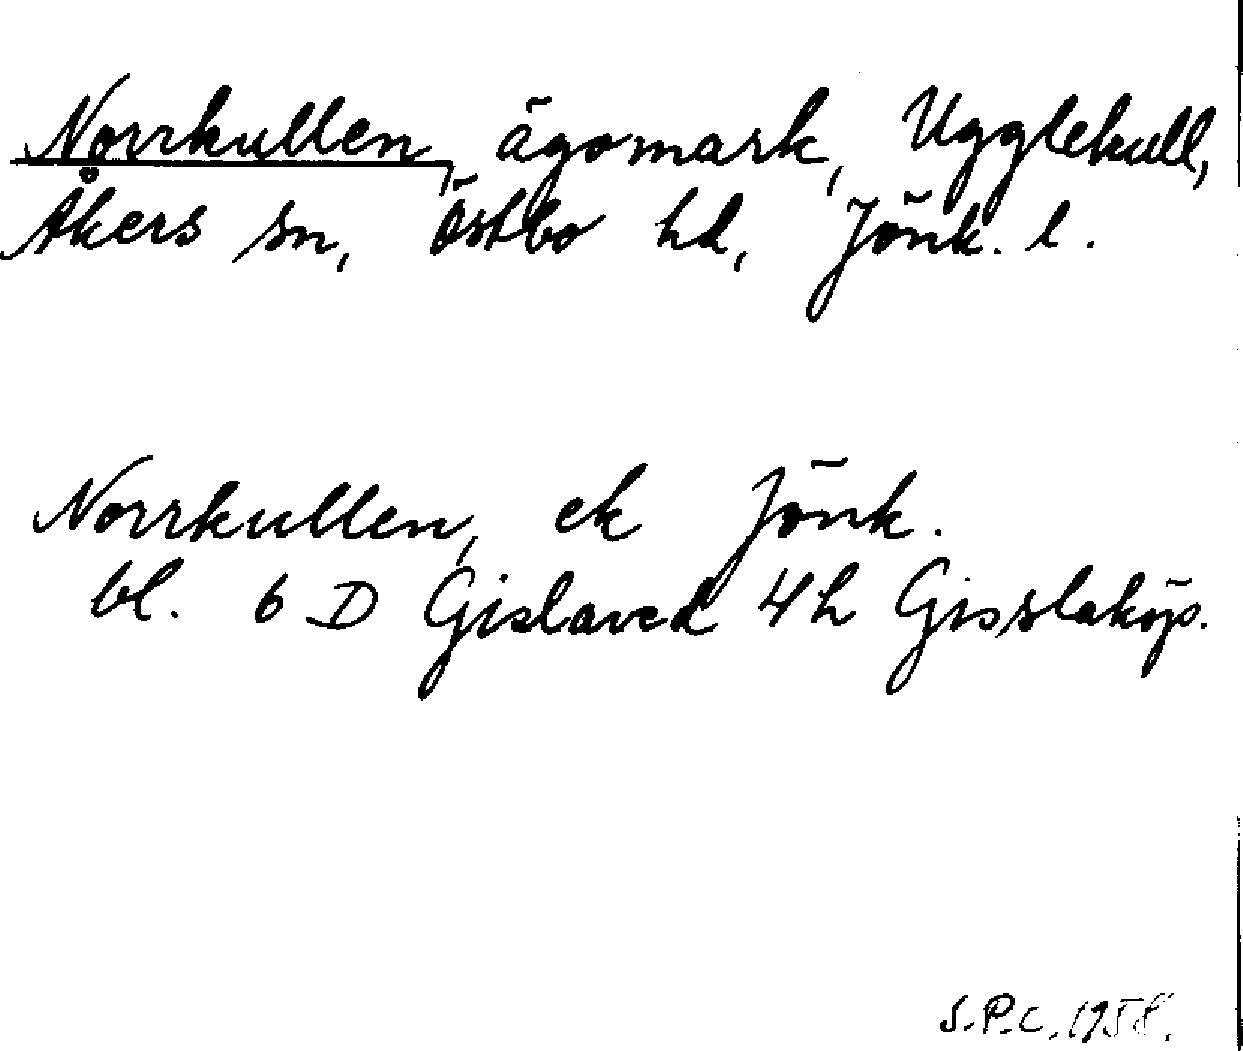 Norrkullen, ägomark, Ugglekull,
Åkers sn, Östbo hd, Jönk. l.
Norrkullen, ek Jönk.
bl. 6 D Gislaved 4h Gisslaköp.
S.P.C. 1958.